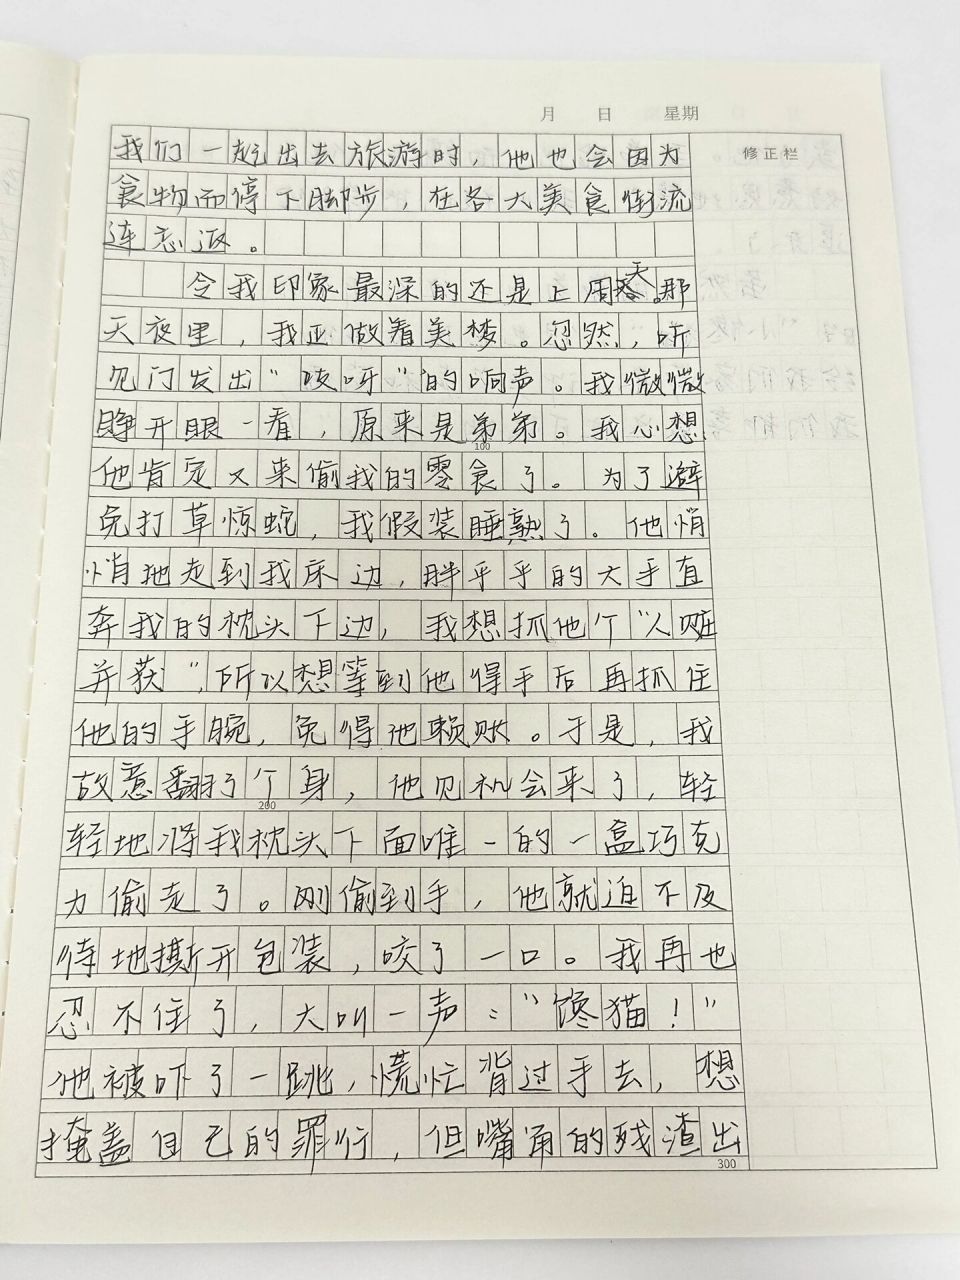 月 日 星期
修正栏
我们一起出去旅游时，他也会因为
食物而停下脚步，在各大美食街流
连忘返。
令我印象最深的还是上周天。那
天夜里，我正做着美梦。忽然，听
见门发出“吱呀”的响声。我微微
睁开眼一看，原来是弟弟。我心想
100
他肯定又来偷我的零食了。为了避
免打草惊蛇，我假装睡熟了。他悄
悄地走到我床边，胖乎乎的大手直
奔我的枕头下边，我想抓他个“人赃
并获”，所以想等到他得手后再抓住
他的手腕，免得他赖账。于是，我
故意翻了个身，他见机会来了，轻
200
轻地将我枕头下面唯一的一盒巧克
力偷走了。刚偷到手，他就迫不及
待地撕开包装，咬了一口。我再也
忍不住了，大叫一声：“馋猫！”
他被吓了一跳，慌忙背过手去，想
掩盖自己的罪行，但嘴角的残渣出
300